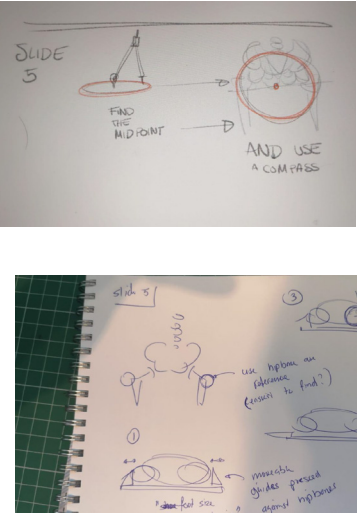 SLIDE
5
FIND
THE
MIDPOINT
AND USE
A COMPASS
slide 3
3
use hipbone as
reference
(easier to find?)
1
moveable
guides pressed
against hipbones
feet size